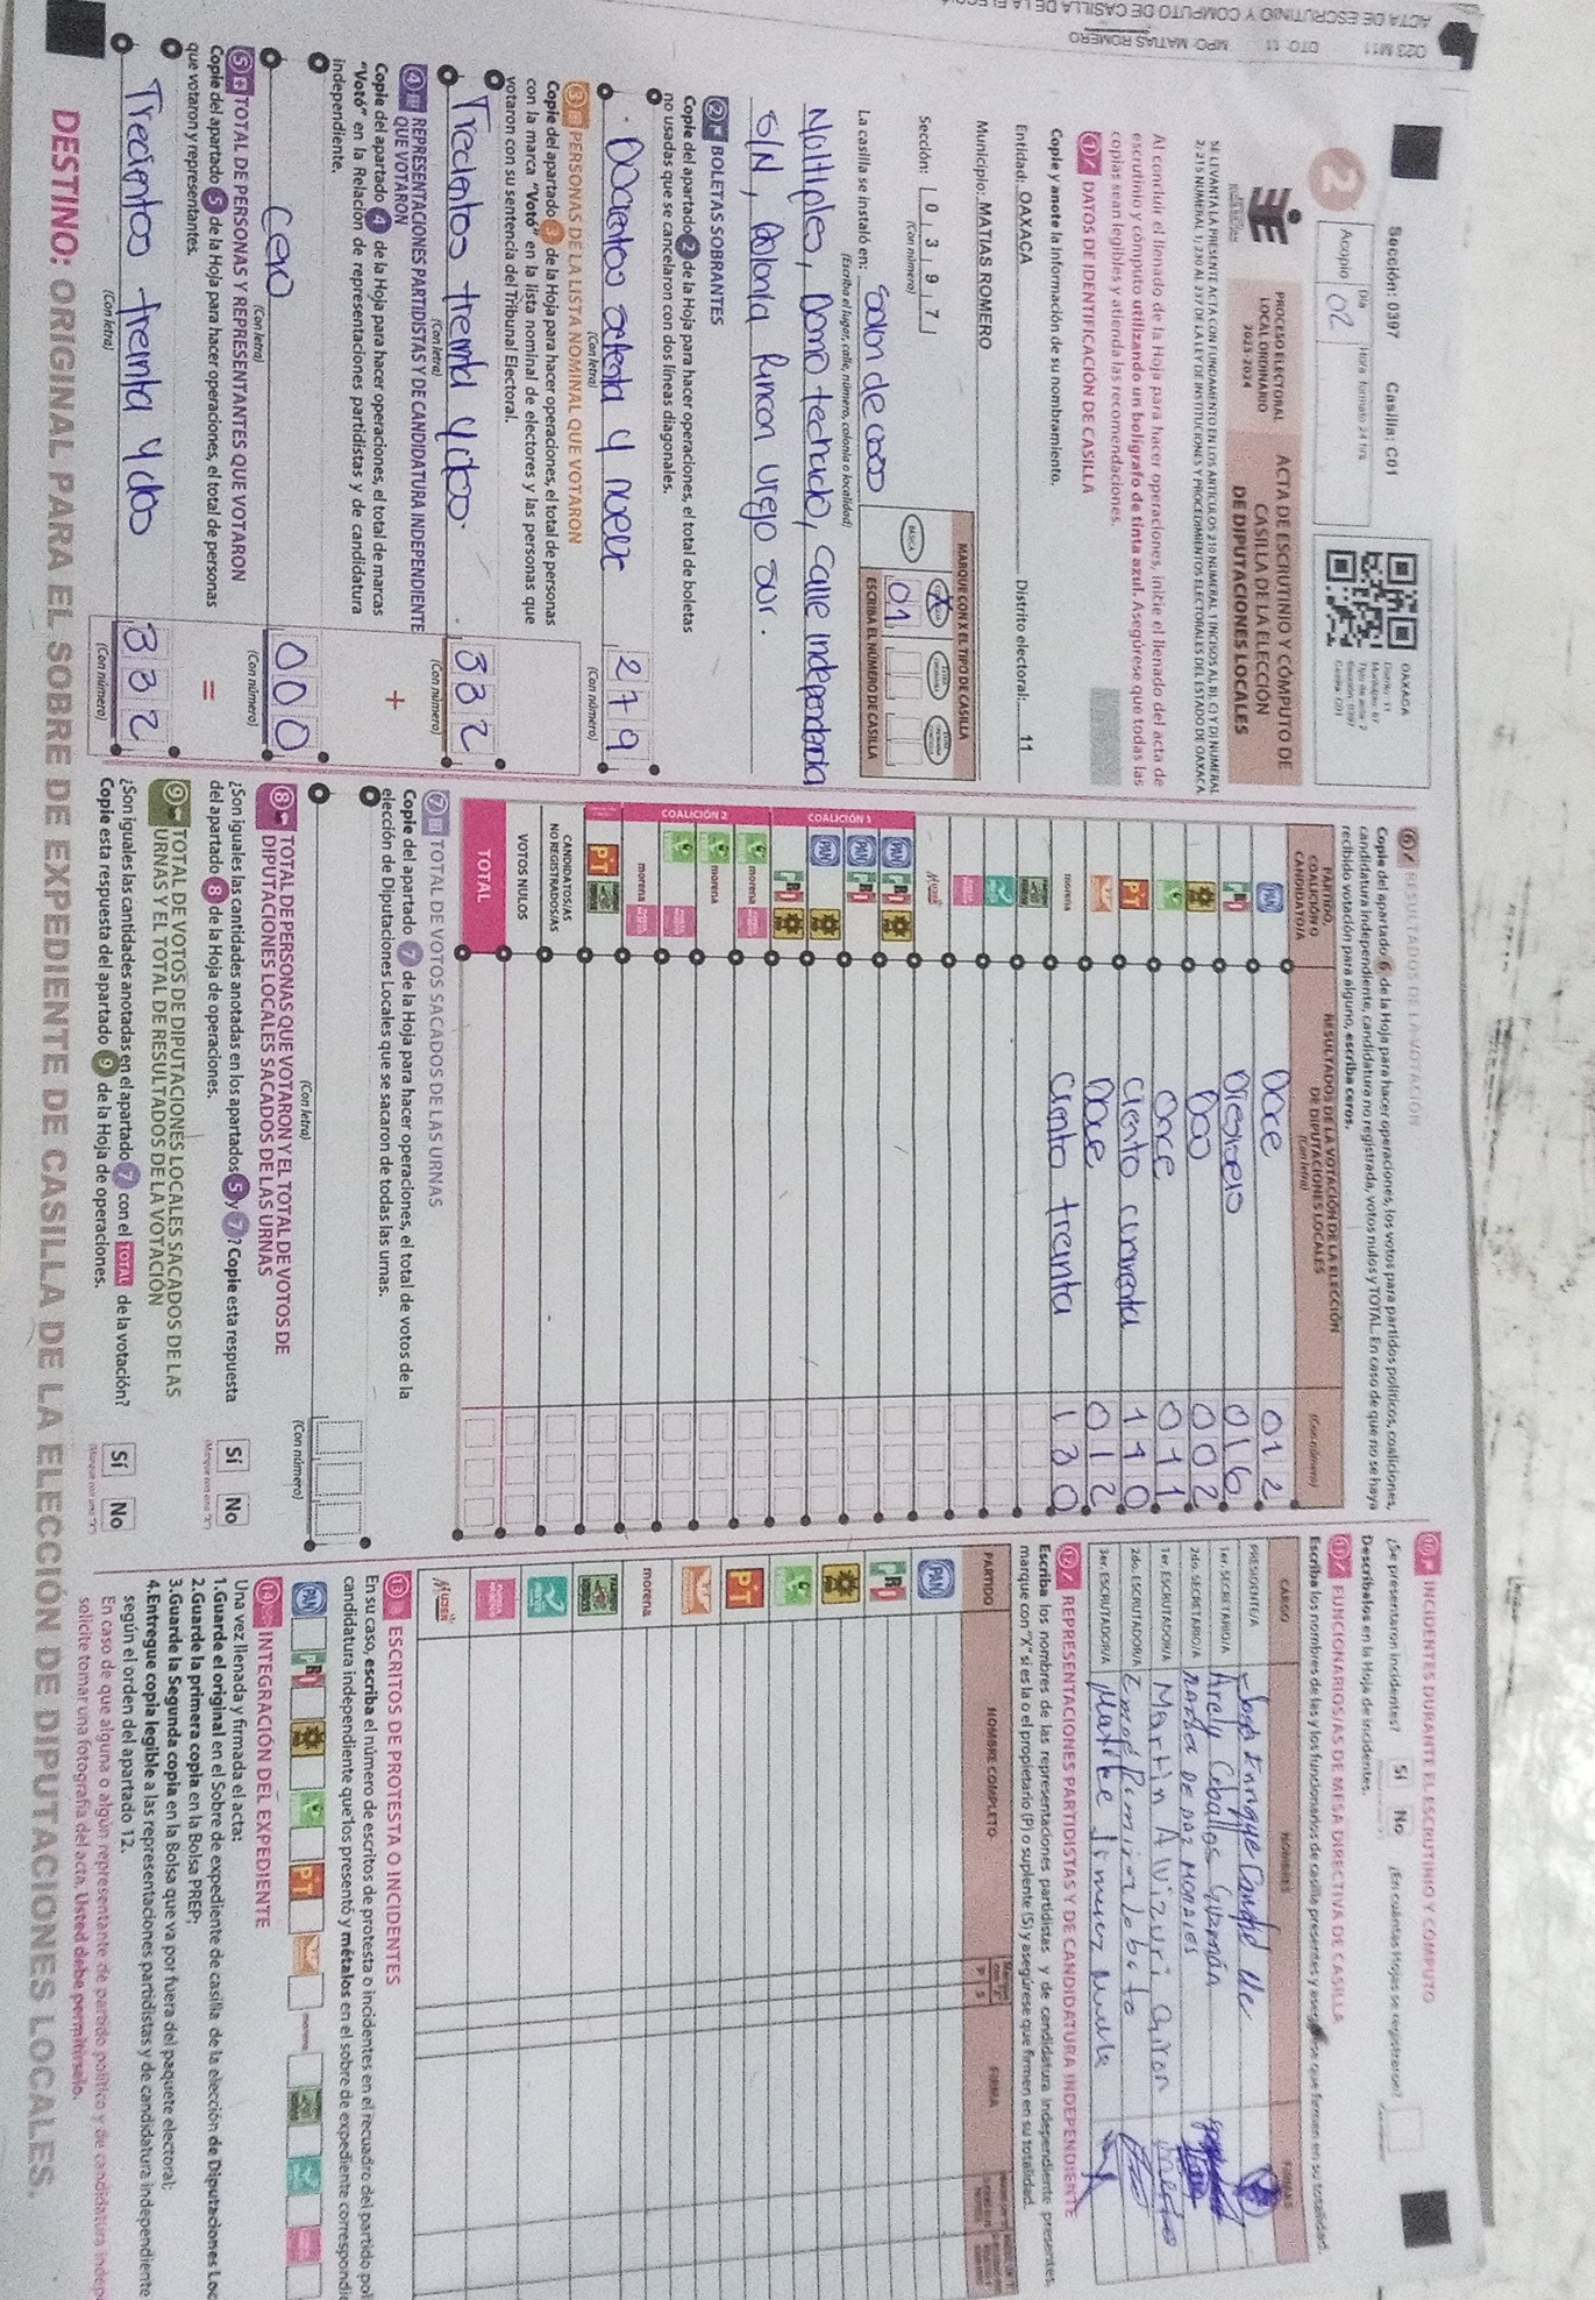 Sección: 0397 Casilla: C01
2
Acopio
Día
02
Hora formato 24 hrs
OAXACA
PROCESO ELECTORAL
LOCAL ORDINARIO
2023-2024
ACTA DE ESCRUTINIO Y CÓMPUTO DE
CASILLA DE LA ELECCIÓN
DE DIPUTACIONES LOCALES
SE LEVANTA LA PRESENTE ACTA CON FUNDAMENTO EN LOS ARTÍCULOS 210 NUMERAL 1 INCISOS A), B), C) Y D) NUMERAL
2; 215 NUMERAL 1; 230 AL 237 DE LA LEY DE INSTITUCIONES Y PROCEDIMIENTOS ELECTORALES DEL ESTADO DE OAXACA.
Al concluir el llenado de la Hoja para hacer operaciones, inicie el llenado del acta de
escrutinio y cómputo utilizando un bolígrafo de tinta azul. Asegúrese que todas las
copias sean legibles y atienda las recomendaciones.
1 DATOS DE IDENTIFICACIÓN DE CASILLA
Copie y anote la información de su nombramiento.
Entidad: OAXACA Distrito electoral: 11
Municipio: MATIAS ROMERO
Sección: 0 3 9 7
(Con número)
MARQUE CON X EL TIPO DE CASILLA
BÁSICA
X
01
ESCRIBA EL NÚMERO DE CASILLA
La casilla se instaló en: Salon de usos
(Escriba el lugar, calle, número, colonia o localidad)
Multiples, Domo techado, calle independencia
S/N, Colonia Rincon Viejo sur.
2 BOLETAS SOBRANTES
Copie del apartado 2 de la Hoja para hacer operaciones, el total de boletas
no usadas que se cancelaron con dos líneas diagonales.
279
(Con letra) (Con número)
3 PERSONAS DE LA LISTA NOMINAL QUE VOTARON
Copie del apartado 3 de la Hoja para hacer operaciones, el total de personas
con la marca "Votó" en la lista nominal de electores y las personas que
votaron con su sentencia del Tribunal Electoral.
332
(Con letra) (Con número)
4 REPRESENTACIONES PARTIDISTAS Y DE CANDIDATURA INDEPENDIENTE
QUE VOTARON
+
Copie del apartado 4 de la Hoja para hacer operaciones, el total de marcas
"Votó" en la Relación de representaciones partidistas y de candidatura
independiente.
Cero 000
(Con letra) (Con número)
5 TOTAL DE PERSONAS Y REPRESENTANTES QUE VOTARON
=
Copie del apartado 5 de la Hoja para hacer operaciones, el total de personas
que votaron y representantes.
Trecientos treinta y dos 332
(Con letra) (Con número)
6 RESULTADOS DE LA VOTACIÓN
Copie del apartado 6 de la Hoja para hacer operaciones, los votos para partidos políticos, coaliciones,
candidatura independiente, candidatura no registrada, votos nulos y TOTAL. En caso de que no se haya
recibido votación para alguno, escriba ceros.
PARTIDO, COALICIÓN O CANDIDATO/A
RESULTADOS DE LA VOTACIÓN DE LA ELECCIÓN
DE DIPUTACIONES LOCALES
(Con letra) (Con número)
PAN Doce 012
PRI 016
Dos 002
Once 011
PT 140
Doce 012
morena Ciento treinta 130
COALICIÓN 1
PAN PRI
PAN PRI
PAN
PRI
COALICIÓN 2
morena
morena
morena
PT
CANDIDATOS/AS
NO REGISTRADOS/AS
VOTOS NULOS
TOTAL
7 TOTAL DE VOTOS SACADOS DE LAS URNAS
Copie del apartado 7 de la Hoja para hacer operaciones, el total de votos de la
elección de Diputaciones Locales que se sacaron de todas las urnas.
(Con letra) (Con número)
8 TOTAL DE PERSONAS QUE VOTARON Y EL TOTAL DE VOTOS DE
DIPUTACIONES LOCALES SACADOS DE LAS URNAS
¿Son iguales las cantidades anotadas en los apartados 5 y 7? Copie esta respuesta
del apartado 8 de la Hoja de operaciones.
Sí No
9 TOTAL DE VOTOS DE DIPUTACIONES LOCALES SACADOS DE LAS
URNAS Y EL TOTAL DE RESULTADOS DE LA VOTACIÓN
¿Son iguales las cantidades anotadas en el apartado 7 con el TOTAL de la votación?
Copie esta respuesta del apartado 9 de la Hoja de operaciones.
Sí No
10 INCIDENTES DURANTE EL ESCRUTINIO Y CÓMPUTO
¿Se presentaron incidentes? Sí No ¿En cuántas Hojas se registraron?
Descríbalos en la Hoja de incidentes.
11 FUNCIONARIOS/AS DE MESA DIRECTIVA DE CASILLA
Escriba los nombres de las y los funcionarios de casilla presentes y asegúrese que firmen en su totalidad.
CARGO NOMBRES FIRMAS
PRESIDENTE/A Enrique
1er. SECRETARIO/A Arely Ceballos Guzmán
2do. SECRETARIO/A
1er. ESCRUTADOR/A Martin
2do. ESCRUTADOR/A
3er. ESCRUTADOR/A
12 REPRESENTACIONES PARTIDISTAS Y DE CANDIDATURA INDEPENDIENTE
Escriba los nombres de las representaciones partidistas y de candidatura independiente presentes,
marque con "X" si es la o el propietario (P) o suplente (S) y asegúrese que firmen en su totalidad.
PARTIDO NOMBRE COMPLETO P S FIRMA
PAN
PRI
PT
morena
MUJER
13 ESCRITOS DE PROTESTA O INCIDENTES
En su caso, escriba el número de escritos de protesta o incidentes en el recuadro del partido pol
candidatura independiente que los presentó y métalos en el sobre de expediente correspondi
PAN PRI PT morena
14 INTEGRACIÓN DEL EXPEDIENTE
Una vez llenada y firmada el acta:
1.Guarde el original en el Sobre de expediente de casilla de la elección de Diputaciones Loc
2.Guarde la primera copia en la Bolsa PREP;
3.Guarde la Segunda copia en la Bolsa que va por fuera del paquete electoral;
4.Entregue copia legible a las representaciones partidistas y de candidatura independiente
según el orden del apartado 12.
En caso de que alguna o algún representante de partido político y de candidatura indep
solicite tomar una fotografía del acta, Usted debe permitírselo.
DESTINO: ORIGINAL PARA EL SOBRE DE EXPEDIENTE DE CASILLA DE LA ELECCIÓN DE DIPUTACIONES LOCALES.
023 M11 DTO: 11 MPO: MATIAS ROMERO
ACTA DE ESCRUTINIO Y CÓMPUTO DE CASILLA DE LA